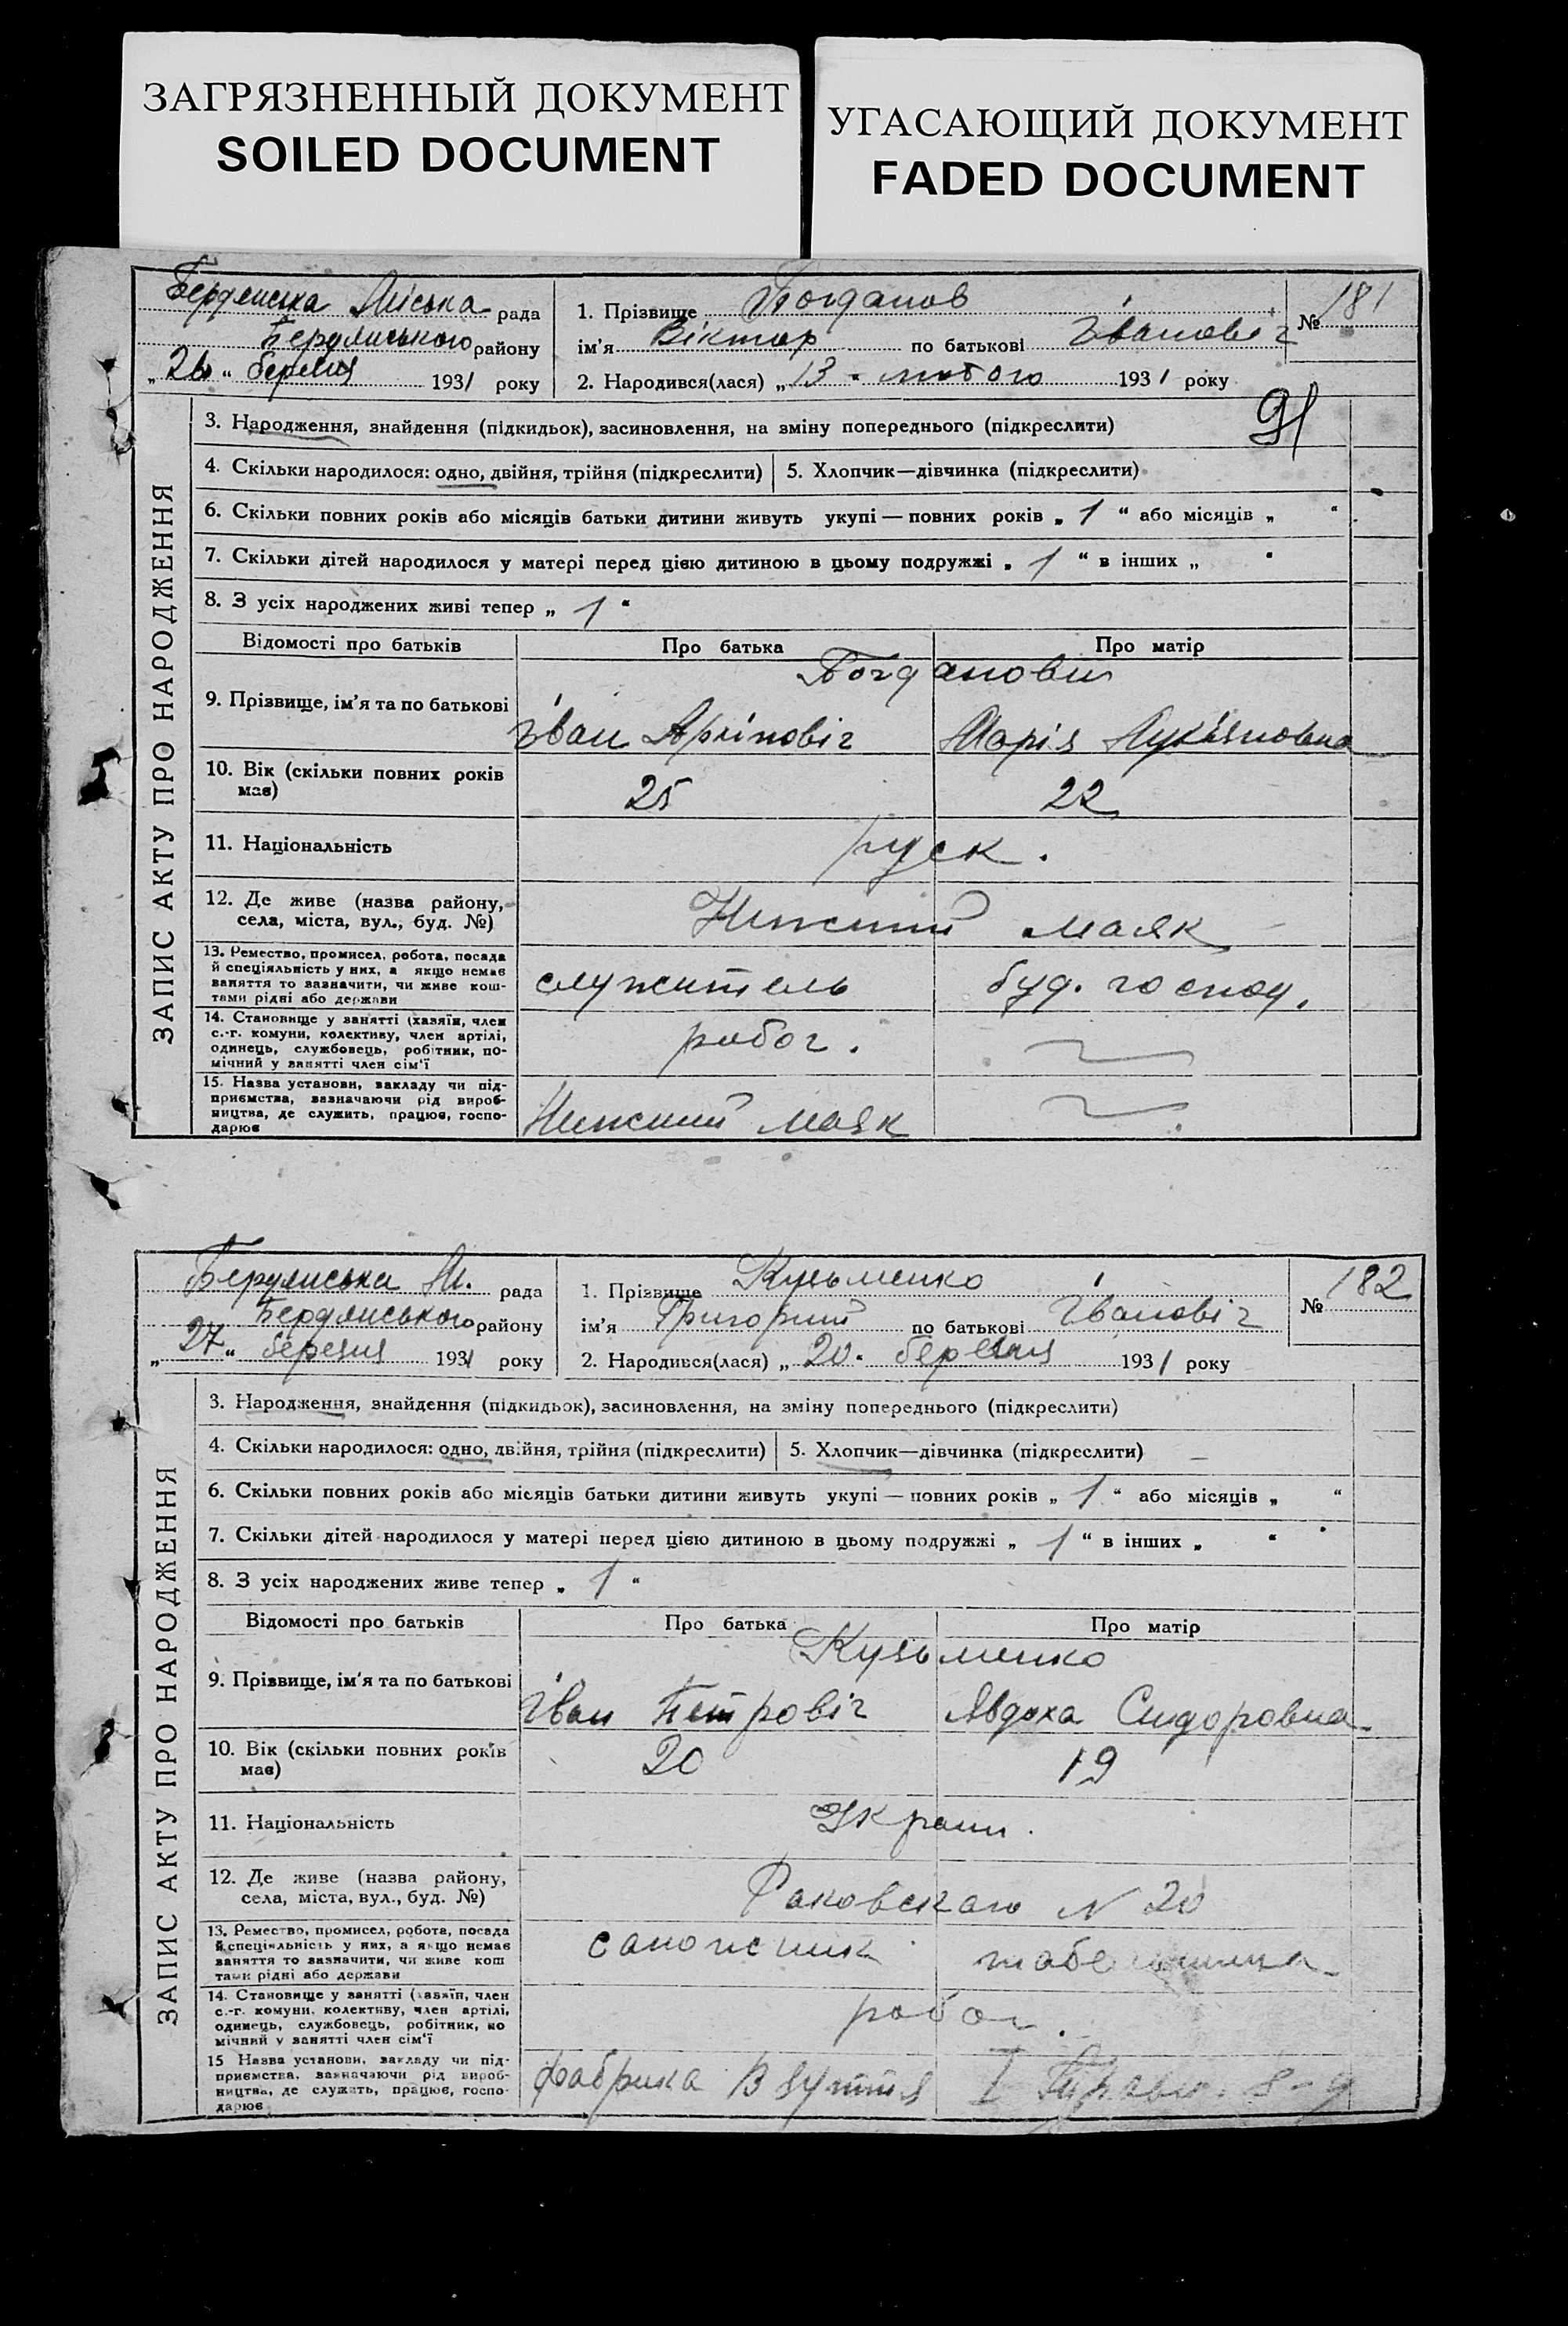 ЗАГРЯЗНЕННЫЙ ДОКУМЕНТ
SOILED DOCUMENT
УГАСАЮЩИЙ ДОКУМЕНТ
FADED DOCUMENT
Бердянська Міська рада
Бердянського району
„26“ березня 1931 року
1. Прізвище Богданов
ім'я Віктор по батькові Іванович
2. Народився(лася) „13“ лютого 1931 року
№ 181
91
ЗАПИС АКТУ ПРО НАРОДЖЕННЯ
3. Народження, знайдення (підкидьок), засиновлення, на зміну попереднього (підкреслити)
4. Скільки народилося: одно, двійня, трійня (підкреслити) 5. Хлопчик—дівчинка (підкреслити)
6. Скільки повних років або місяців батьки дитини живуть укупі — повних років „ 1 “ або місяців „ “
7. Скільки дітей народилося у матері перед цією дитиною в цьому подружжі „ 1 “ в інших „ “
8. З усіх народжених живі тепер „ 1 “
Відомості про батьків Про батька Про матір
Богданови
9. Прізвище, ім'я та по батькові
Іван Марія Лук'яновна
10. Вік (скільки повних років має) 25 22
11. Національність руск.
12. Де живе (назва району, села, міста, вул., буд. №) Нижний маяк
13. Ремество, промисел, робота, посада й спеціяльність у них, а якщо немає заняття то зазначити, чи живе коштами рідні або держави
служитель буд. господ.
14. Становище у занятті (хазяїн, член с.-г. комуни, колективу, член артілі, одинець, службовець, робітник, помічний у занятті член сім'ї
робоч.
15. Назва установи, закладу чи підприємства, зазначаючи рід виробництва, де служить, працює, господарює
Нижний маяк
Бердянська М. рада
Бердянського району
„27“ березня 1931 року
1. Прізвище Кузьменко
ім'я Григорий по батькові Івановіч
2. Народився(лася) „20“ березня 1931 року
№ 182
ЗАПИС АКТУ ПРО НАРОДЖЕННЯ
3. Народження, знайдення (підкидьок), засиновлення, на зміну попереднього (підкреслити)
4. Скільки народилося: одно, двійня, трійня (підкреслити) 5. Хлопчик—дівчинка (підкреслити)
6. Скільки повних років або місяців батьки дитини живуть укупі — повних років „ 1 “ або місяців „ “
7. Скільки дітей народилося у матері перед цією дитиною в цьому подружжі „ 1 “ в інших „ “
8. З усіх народжених живе тепер „ 1 “
Відомості про батьків Про батька Про матір
Кузьменко
9. Прізвище, ім'я та по батькові
Іван Петровіч Явдоха Сидоровна
10. Вік (скільки повних років має) 20 19
11. Національність Украин.
12. Де живе (назва району, села, міста, вул., буд. №) Раковскаго N 20
13. Ремество, промисел, робота, посада й спеціяльність у них, а якщо немає заняття то зазначити, чи живе коштами рідні або держави
сапожник
14. Становище у занятті (хазяїн, член с.-г. комуни, колективу, член артілі, одинець, службовець, робітник, помічний у занятті член сім'ї
робоч.
15 Назва установи, закладу чи підприємства, зазначаючи рід виробництва, де служить, працює, господарює
Фабрика Взуття